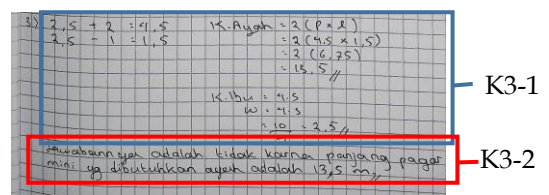 3) 2,5 + 2 = 4,5
2,5 - 1 = 1,5
K. Ayah = 2 (P x l)
= 2 (4.5 x 1,5)
= 2 (6,75)
= 13,5 //
K. Ibu = 4.5
= 10 = 2,5 //
K3-1
Jawabannya adalah tidak karna panjang pagar
mini yg dibutuhkan ayah adalah 13,5 m //
K3-2